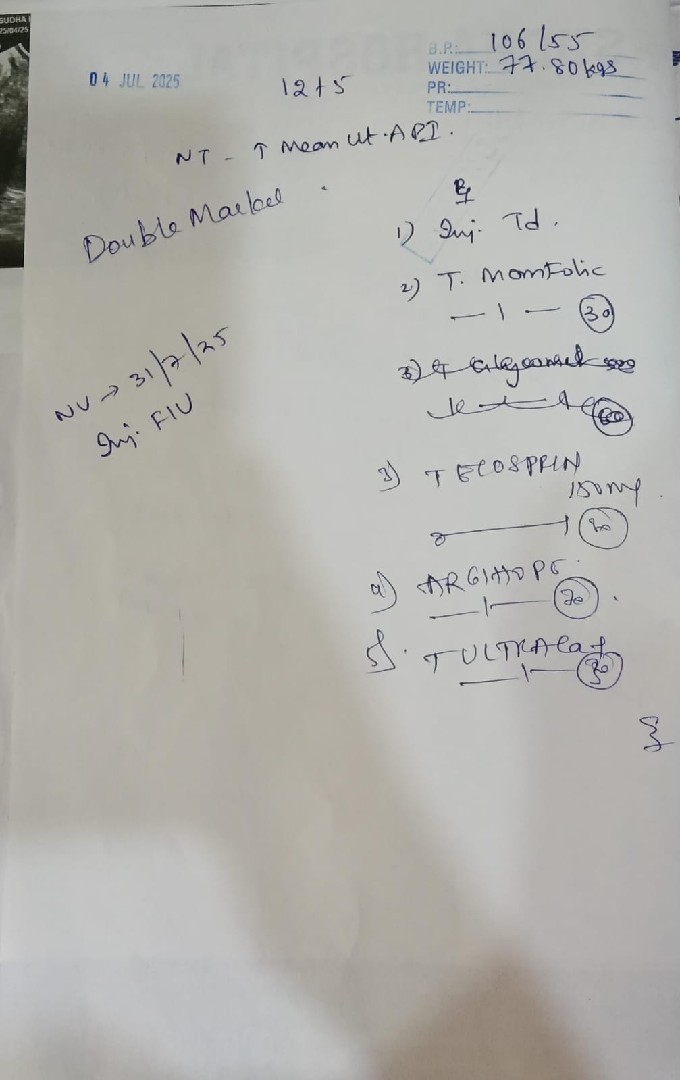 SUDHA
25/04/25
B.P.: 106/55
04 JUL 2025
WEIGHT: 77.80 kgs
12+5
PR:
TEMP:
NT - ↑ Mean Ut. API.
Double Marker
Rx
1) Inj. Td.
2) T. MomFolic
— 1 — 30
3)
3) T ECOSPRIN
150mg
NV → 31/7/25
Inj. FLU
4) ARGIHOPE
— 1 — 30
5). T ULTRACal
— 1 — 30